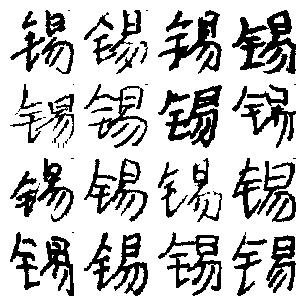 锡锡锡锡
锡锡锡锡
锡锡锡锡
锡锡锡锡